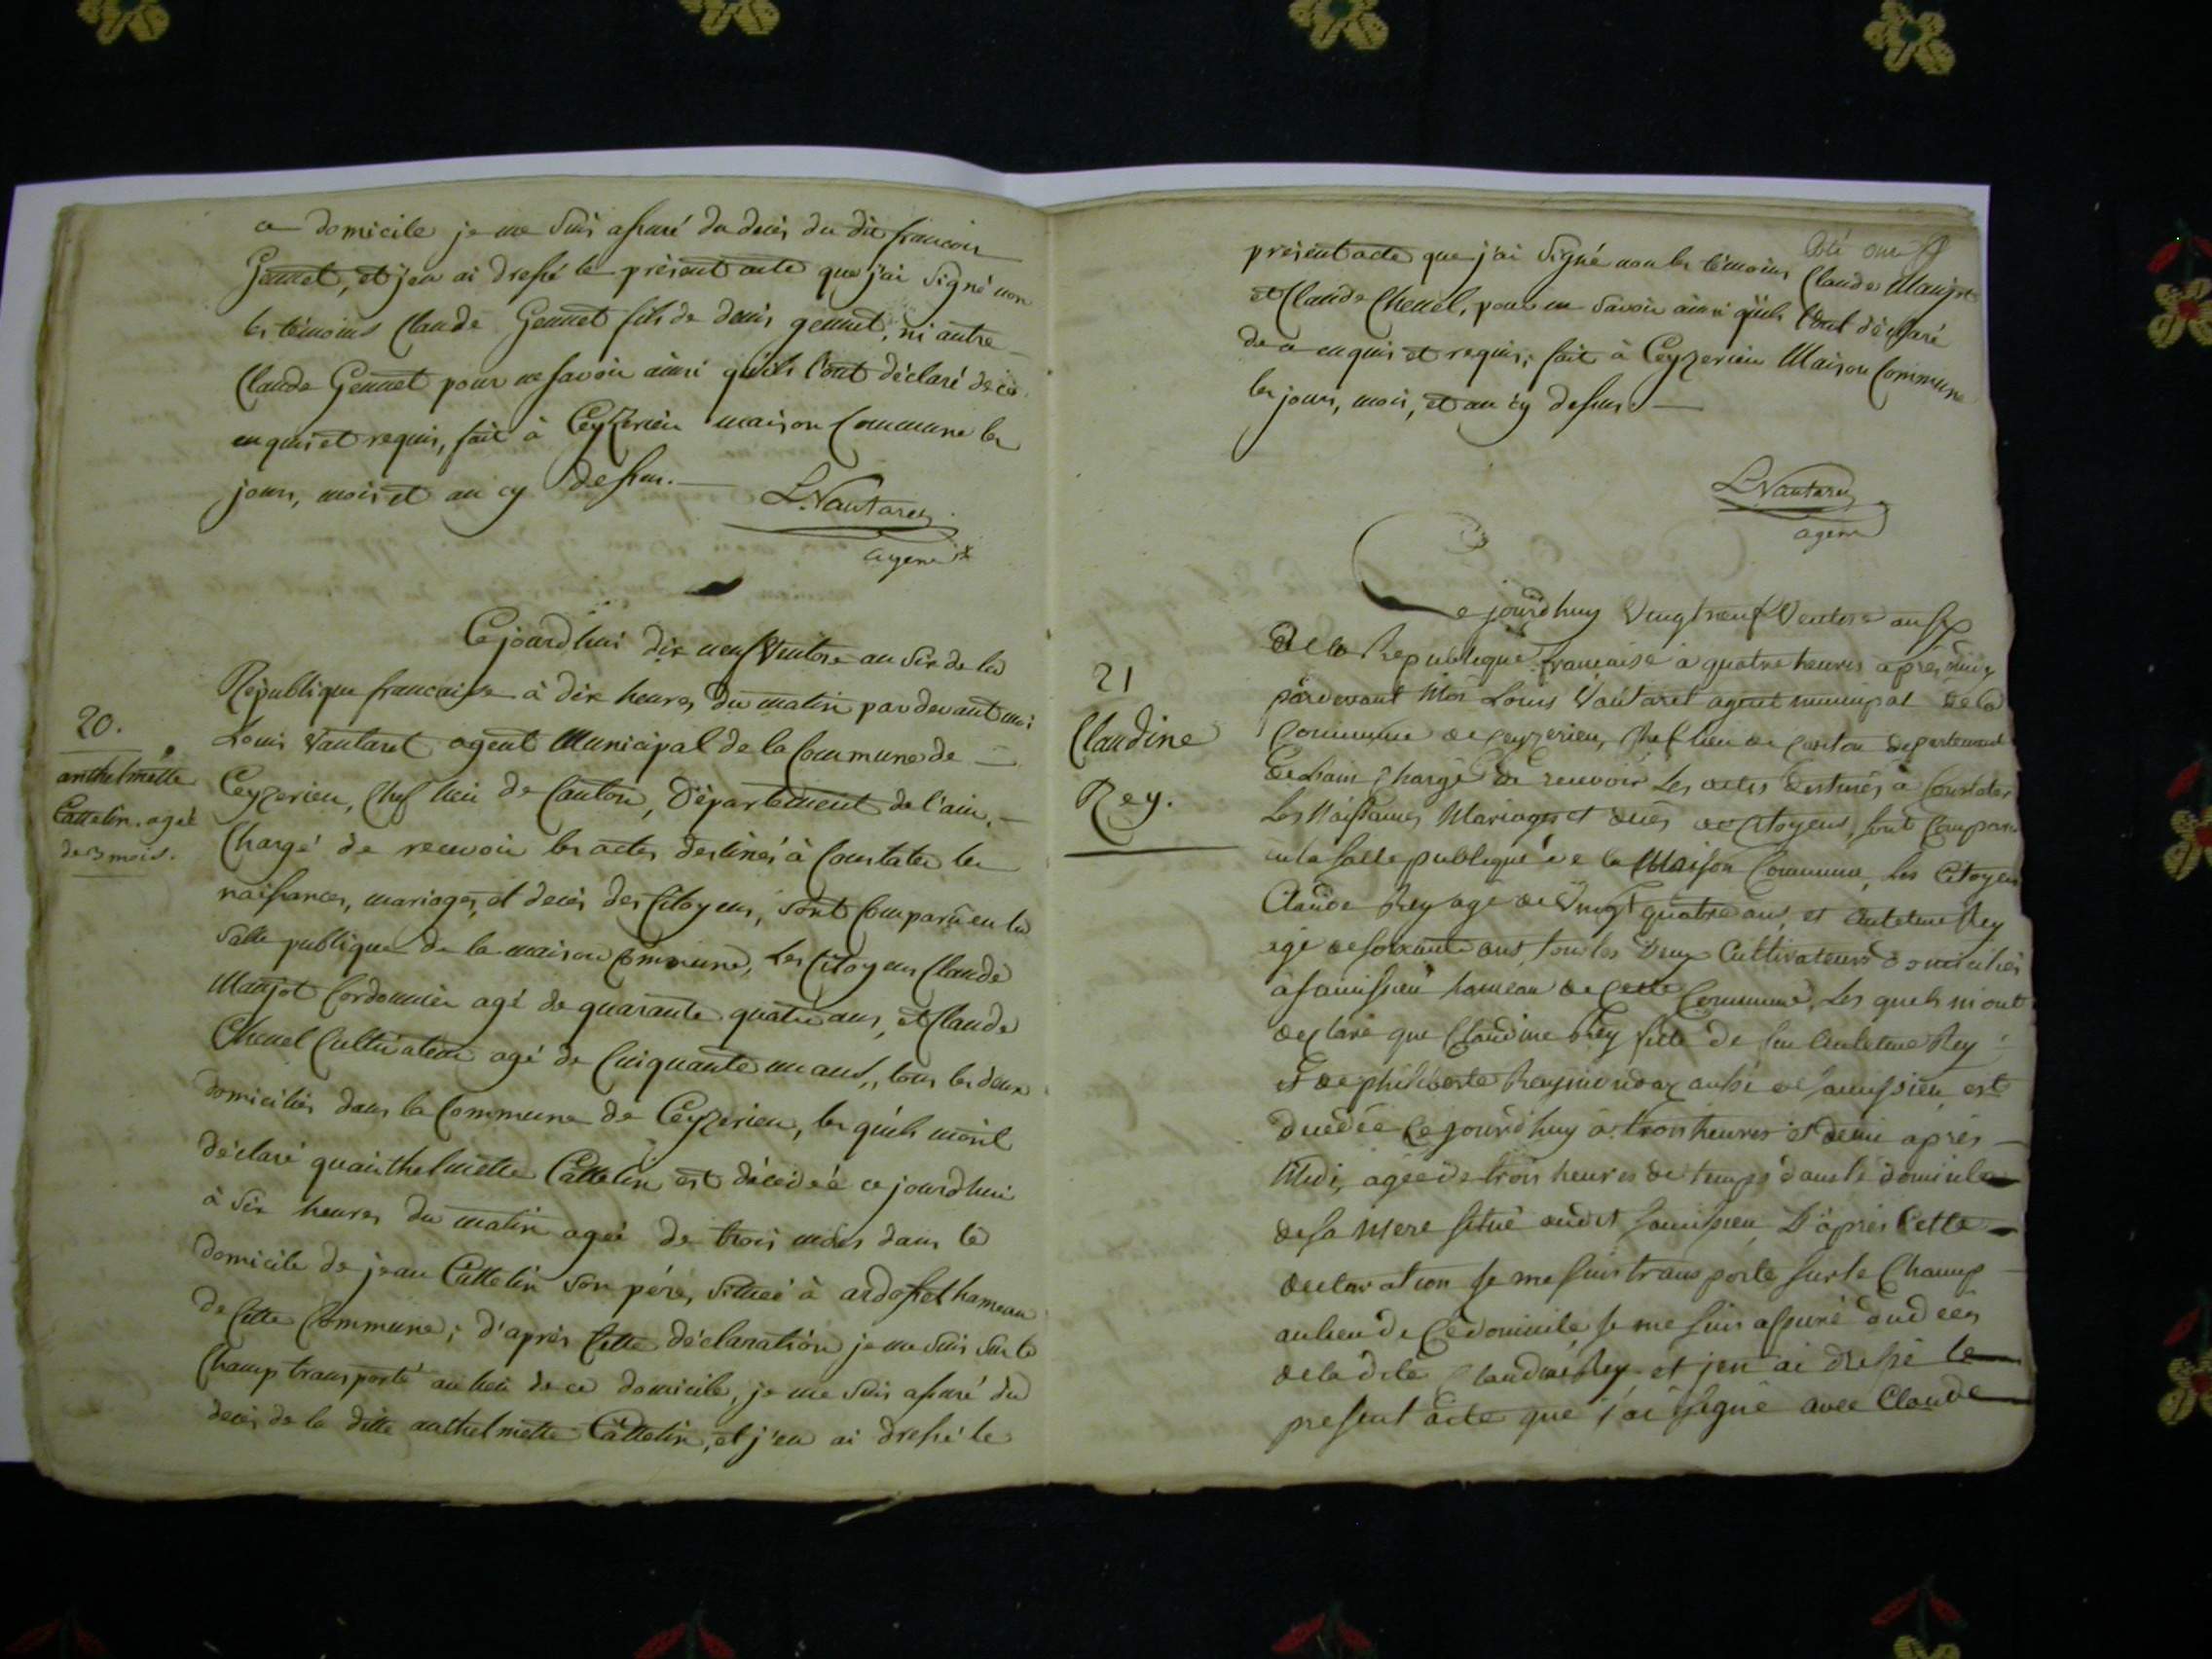 ce domicile je me suis assuré du decès du dit francois
Gennet, et j'en ai dressé le présent acte que j'ai Signé non
les témoins Claude Gennet fils de denis gennet, ni autre
Claude Gennet pour ne savoir ainsi qu'ils l'ont déclaré de ce
enquis et requis, fait à Ceyzerieu maison Commune les
jours, mois et an cy dessus.
L. Vautaret
agent
20.
anthelmette
Cattelin. agée
de 3 mois.
Cejourdhui dix neuf Ventose an Six de la
République francaise à dix heures du matin par devant moi
Louis Vautaret agent Municipal de la Commune de
Ceyzerieu, Chef lieu de Canton, Département de l'ain,
Chargé de recevoir les actes destinés à Constater les
naissances, mariages, et decès des Citoyens, Sont Comparu en la
Salle publique de la maison Commune, Les Citoyens Claude
Maujot Cordonnier agé de quarante quatre ans, et Claude
Chenel Cultivateur agé de Cinquante un ans, tous les deux
domiciliés dans la Commune de Ceyzerieu, les quels m'ont
déclaré qu'anthelmette Cattelin est décédée ce jourdhui
à Six heures du matin agée de trois mois dans le
domicile de jean Cattelin Son père, Situé à ardosset hameau
de Cette Commune; d'après Cette déclaration je me Suis Sur le
Champ transporté au lieu de ce domicile, je me Suis assuré du
decès de la ditte anthelmette Cattelin, et j'en ai dressé le
Coté onze
présent acte que j'ai Signé non les témoins Claude Maujot
et Claude Chenel, pour ne Savoir ainsi qu'ils l'ont déclaré
de ce enquis et requis; fait à Ceyzerieu Maison Commune
les jours, mois, et an cy dessus.
L. Vautaret
agent
21
Claudine
Rey.
Ce jourdhuy Vingt neuf Ventose an six
de la Republique française à quatre heures après midy
pardevant Moi Louis Vautaret agent municipal de la
Commune de Ceyzerieu, Chef lieu de Canton departement
de Lain Chargé de recevoir Les actes destinés à Constater
Les Naissances Mariages et decès de Citoyens, sont Comparu
en la salle publique de la Maison Commune, Les Citoyens
Claude Rey agé de Vingt quatre ans, et Antelme Rey
agé de soixante ans, tous les Deux Cultivateurs domiciliés
à Avrissieu hameau de Cette Commune, Les quels m'ont
declaré que Claudine Rey fille de feu Antelme Rey
et de philiberte Reymondaz aussi de est
decedée Ce jourd'huy à trois heures et demie après
Midi, agée de trois heures de temps dans le domicile
de sa Mere situé audit D'après Cette
declaration Je me suis transporté sur le Champ
au lieu de Ce domicile Je me suis assuré du decès
de la dite Claudine Rey et j'en ai dressé le
present acte que j'ai signé avec Claude